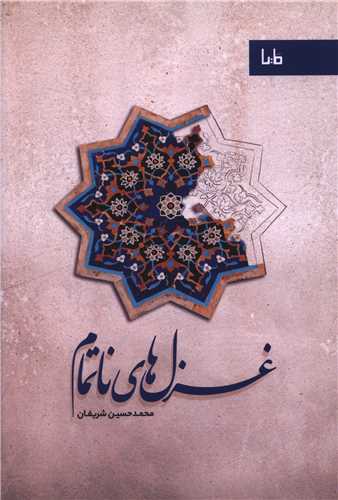 غزل‌های ناتمام
محمدحسین شریفان